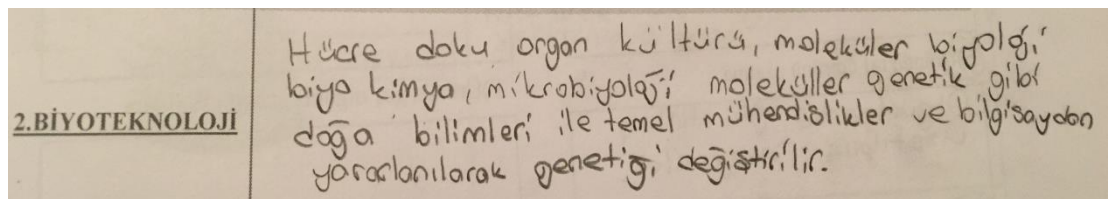 Hücre doku organ kültürü, moleküler biyoloji
biyo kimya, mikrobiyoloji moleküller genetik gibi
2.BİYOTEKNOLOJİ
doğa bilimleri ile temel mühendislikler ve bilgisaydan
yararlanılarak genetiği değiştirilir.